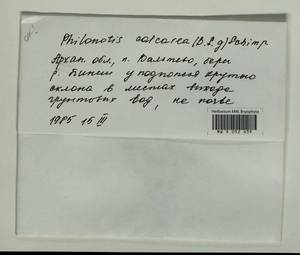 Philonotis calcarea (B.S.g) Schimp
Архан. обл, п. Валтево, берег
р. Пинеги у подножья крутого
склона в местах выхода
грунтовых вод, на почве
1985 15 III
Herbarium MW, Bryophyta